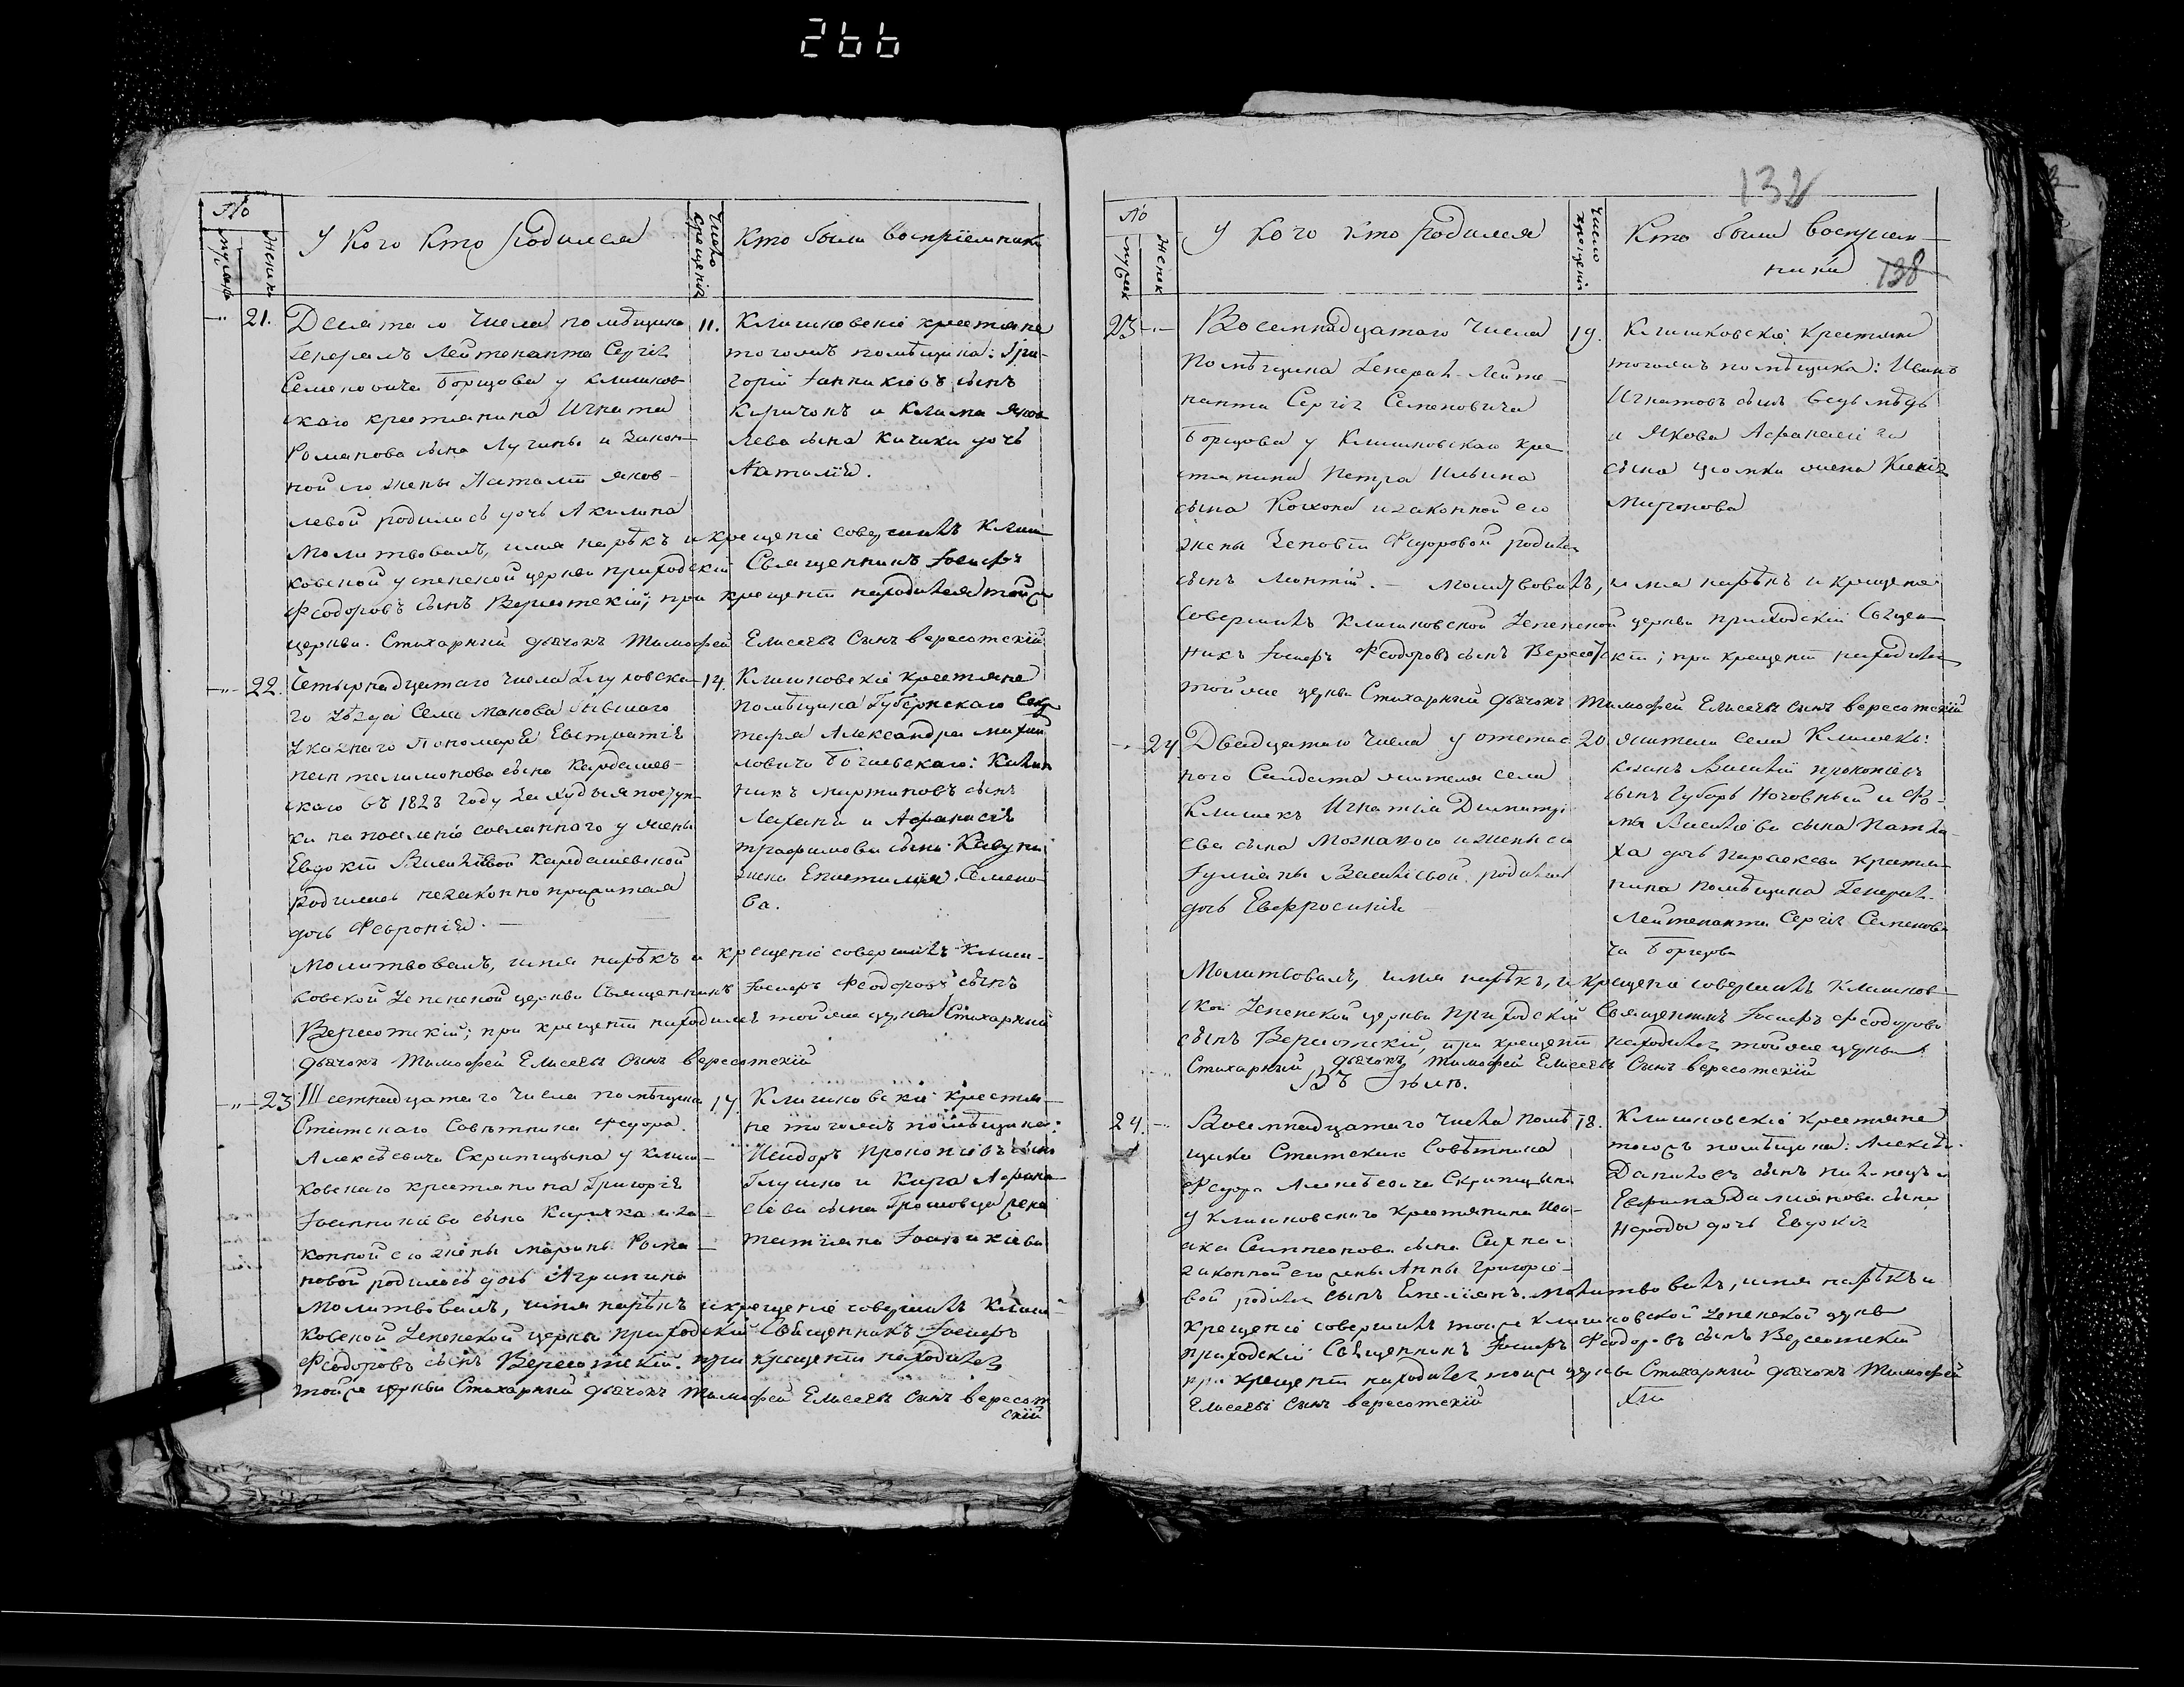 266
№
мужск
женск
У кого кто родился
Число крещенія
Кто были воспріемники
21.
Десятаго числа помѣщика
Генералъ Лейтенанта Сергія
Семеновича Борщова у клишков-
скаго крестьянина Игната
Романова сына Лучины и Закон-
ной его жены Наталіи Яков-
левой родилась дочь Акилина
11.
Клишковскіе крестьяне
тогожъ помѣщика: Гри-
горій Іанникіевъ сынъ
Киричокъ и Клима Яков
лева сына Кичики дочь
Наталія.
Молитвовалъ, имя нарѣкъ и крещеніе совершилъ Клиш
ковской успенской церкви приходскій Священникъ Іосифъ
Феодоровъ сынъ Вересотскій; при крещеніи находился тойже
церкви Стихарный дьячокъ Тимофей Елисеевъ Сынъ вересотскій
22.
Четырнадцатаго числа Глуховска-
го уѣзда Села Макова бывшаго
указнаго Пономаря Евстратія
пантелимонова сына Кардашев-
скаго въ 1823 году за худыя поступ-
ки на поселеніе сосланнаго у жены
Евдокіи Васильевой Кардашевской
родилась незаконно прижитая
дочь Февронія.
14.
Клишковскіе крестьяне
помѣщика Губернскаго Секр
таря Александра михай
ловича
никъ мартиновъ сынъ
и Афанасія
трофимова сына
жена Епистимія Семено-
ва.
Молитвовалъ, имя нарѣкъ и крещеніе совершилъ Клиш-
ковской Успенской церкви Священникъ Іосифъ Феодоровъ сынъ
Вересотскій; при крещеніи находился тойже церкви Стихарный
дьячокъ Тимофей Елисеевъ Сынъ вересотскій
23
Шестнадцатаго числа помѣщика
Статскаго Совѣтника Федора
Алексѣевича Скрипицына у клиш-
ковскаго крестьянина Григорія
Іоанникіева сына Киричка и за-
конной его жены марины Рома-
новой родилась дочь Агрипина
17.
Клишковскіе крестья-
не тогожъ помѣщика:
Исидоръ Прокопіевъ сынъ
Глушко и Кира Афана-
сіева сына жена
татіяна Іоаникіева
Молитвовалъ, имя нарѣкъ и крещеніе совершилъ Клиш-
ковской Успенской церкви приходскій Священникъ Іосифъ
Феодоровъ сынъ Вересотскій. при крещеніи находился
тойже церкви Стихарный дьячокъ Тимофей Елисеевъ Сынъ вересот
скій
132
138
№
мужск
женск
У кого кто родился
Число крещенія
Кто были воспріем-
ники
23
Восемнадцатаго числа
Помѣщика Генералъ-Лейте-
нанта Сергія Семеновича
Борщова у Клишковскаго кре
стьянина Петра Ильина
сына и законной его
жены Зеновіи Федоровой родился
сынъ
19.
Клишковскіе крестьяне
тогожъ помѣщика: Иванъ
Игнатовъ сынъ
и Якова Афанасіева
сына жена Ксенія
Миронова
Молитвовалъ, имя нарѣкъ и крещеніе
совершилъ Клишковской Успенской церкви приходскій Священ
никъ Іосифъ Феодоровъ сынъ Вересотскій; при крещеніи находился
тойже церкви Стихарный дьячокъ Тимофей Елисеевъ сынъ вересотскій
24
Двадцатаго числа у отстав
ного Салдата жителя села
Клишекъ Игнатія Димитрі
ева сына и жены его
Іуліаны Васильевой родилась
дочь Евфросинія
20
жители села Клишекъ:
козакъ Василій прокопіевъ
сынъ и Фо-
мы Васильева сына
дочь параскева крестья-
нина помѣщика Генералъ-
Лейтенанта Сергія Семенови
ча Борщова
Молитвовалъ, имя нарѣкъ, и крещеніе совершилъ Клишков-
ской Успенской церкви приходскій Священникъ Іосифъ Феодоровъ
сынъ Вересотскій, при крещеніи находился тойже церкви
Стихарный дьячокъ Тимофей Елисеевъ Сынъ вересотскій
Въ Іюлѣ.
24.
Восемнадцатаго числа помѣ
щика Статскаго Совѣтника
Федора Алексѣевича Скрипицына
у клишковскаго крестьянина Иса-
ака Симеонова сына и
законной его жены Анны Григоріе-
вой родился сынъ Емеліянъ.
18.
Клишковскіе крестьяне
тогожъ помѣщика: Алексѣй
Даниловъ сынъ и
Ефрема Даміянова сына
дочь Евдокія
Молитвовалъ, имя нарѣкъ и
крещеніе совершилъ тойже Клишковской Успенской церкви
приходскій Священникъ Іосифъ Феодоровъ сынъ Вересотскій
при крещеніи находился тойже церкви Стихарный дьячокъ Тимофей
Елисеевъ Сынъ вересотскій